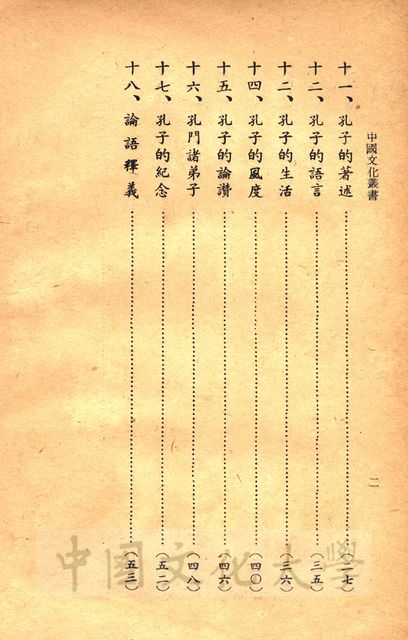 中國文化叢書
十一、孔子的著述……（二七）
十二、孔子的語言……（三五）
十二、孔子的生活……（三六）
十四、孔子的風度……（四〇）
十五、孔子的論讚……（四六）
十六、孔門諸弟子……（四八）
十七、孔子的紀念……（五二）
十八、論語釋義……（五三）
二
中國文化大學